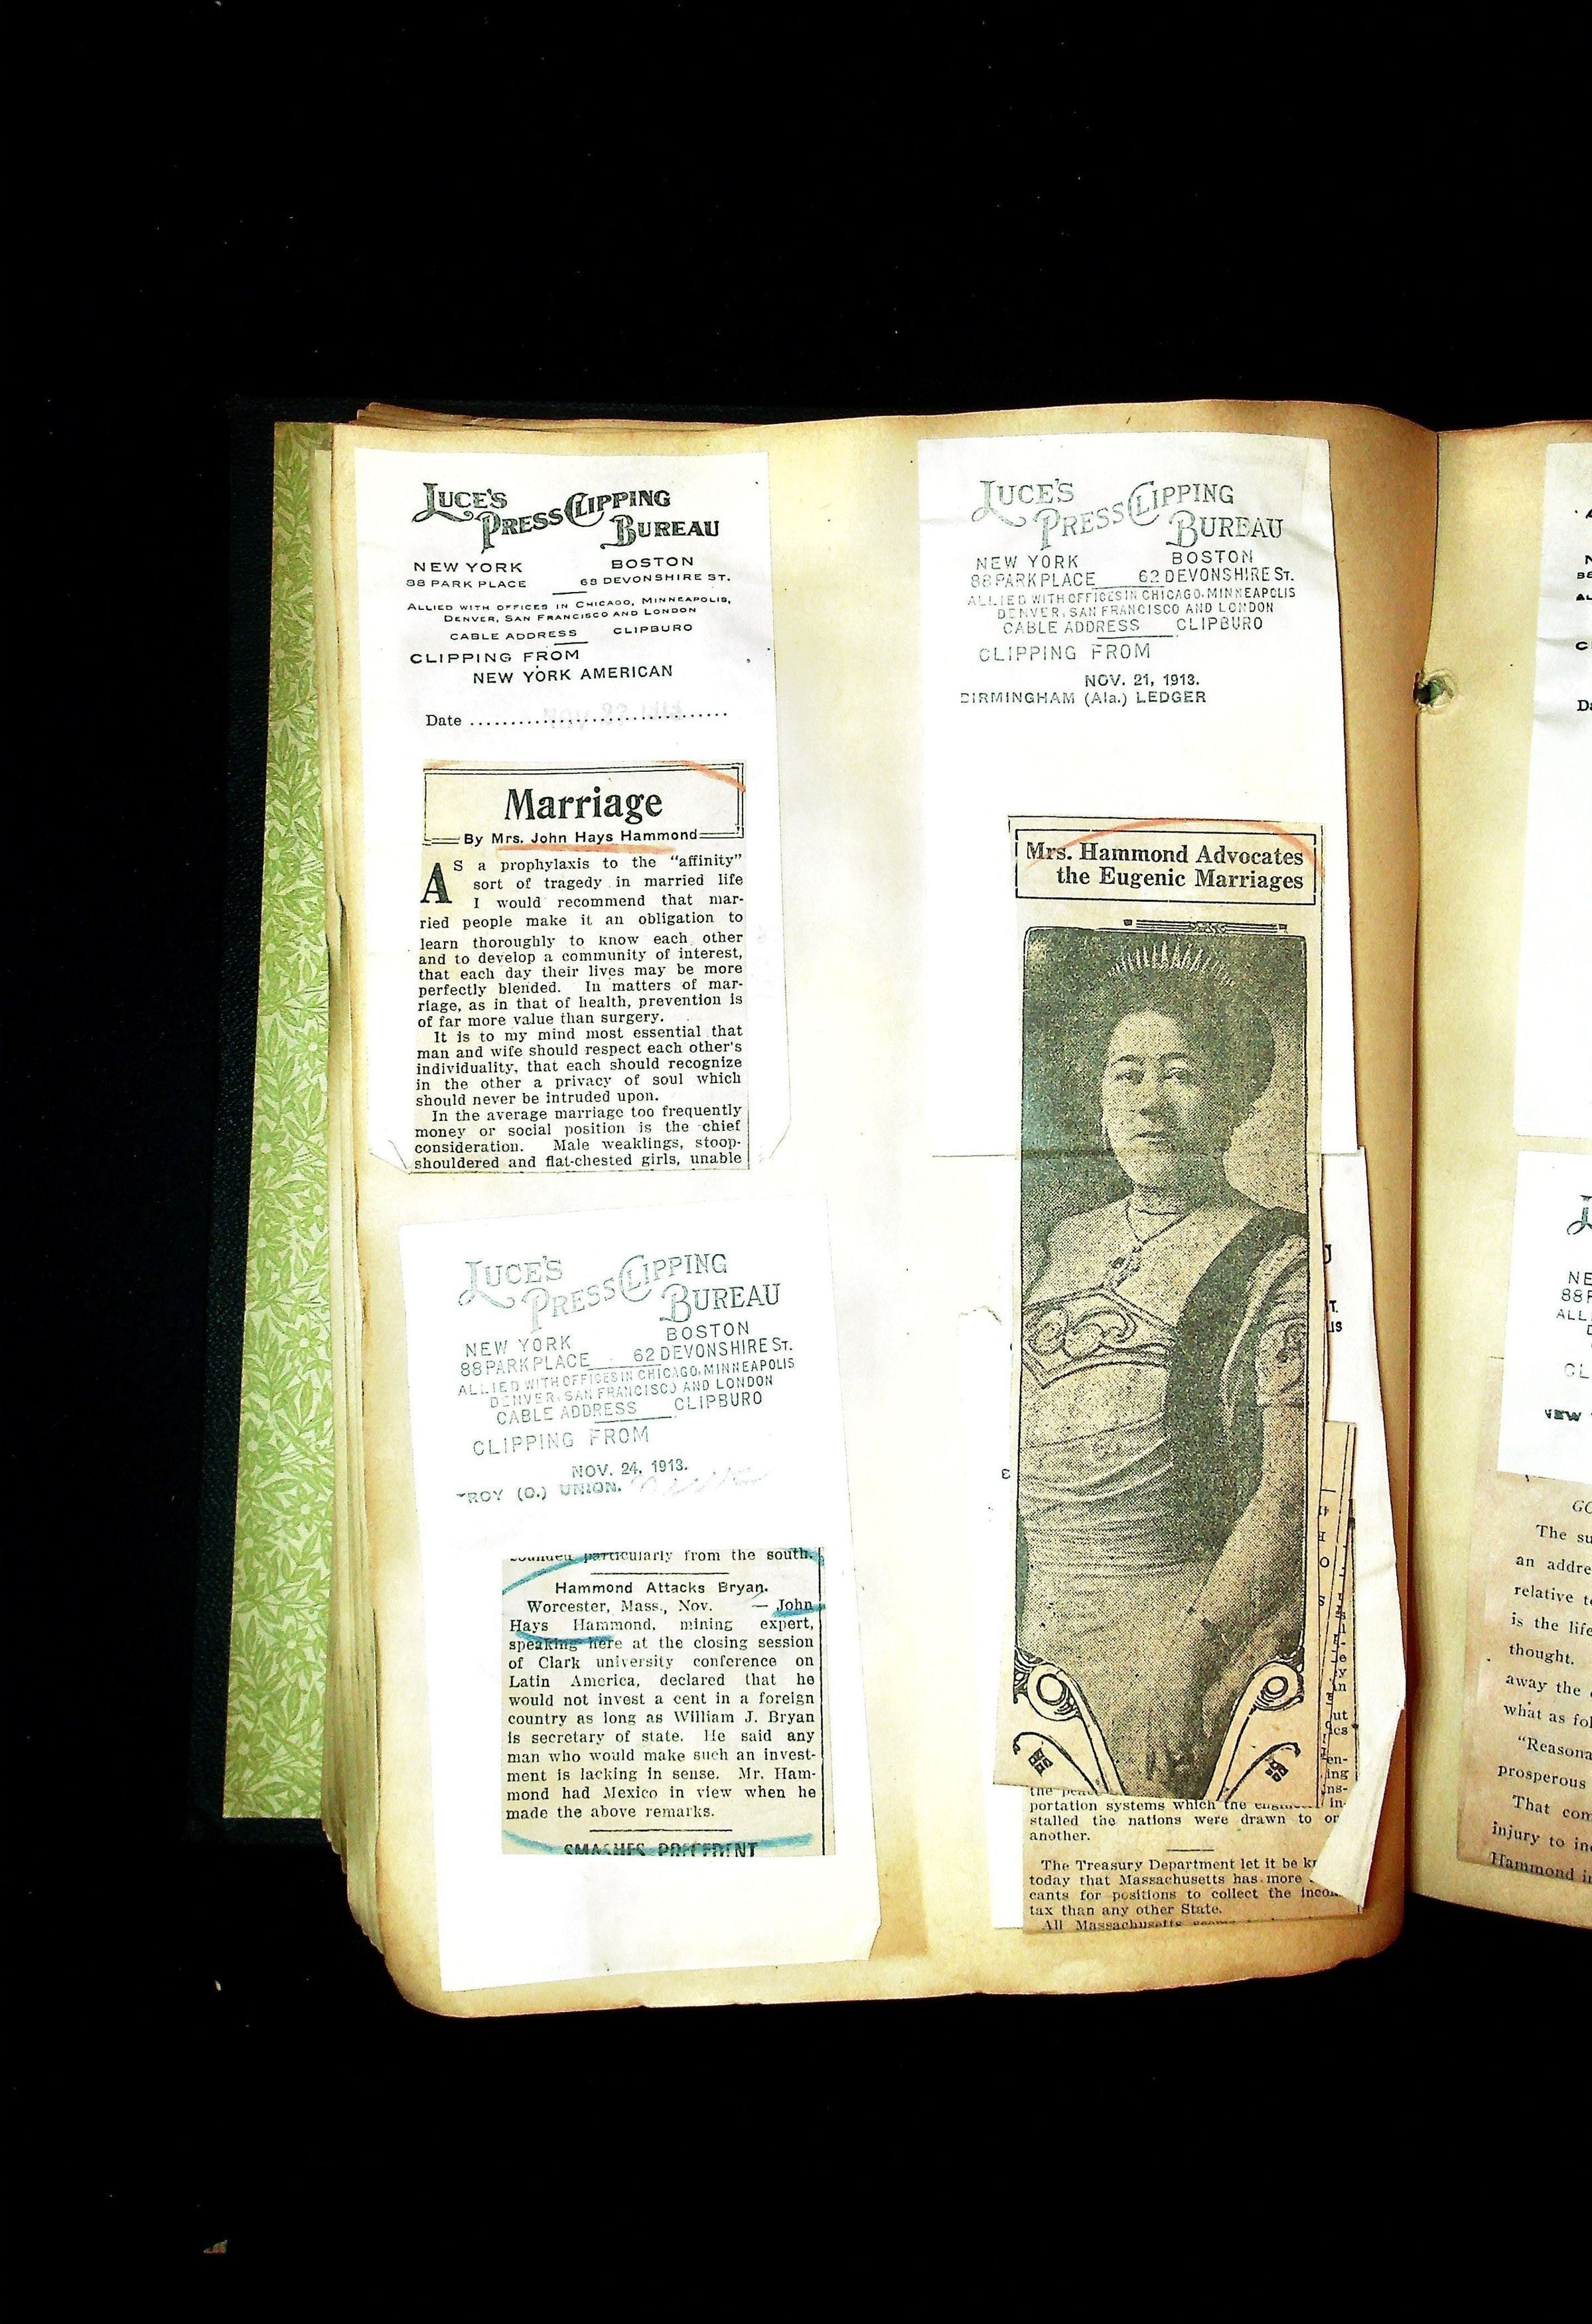 LUCE'S
PRESS CLIPPING
BUREAU
NEW YORK BOSTON
88 PARK PLACE 68 DEVONSHIRE ST.
ALLIED WITH OFFICES IN CHICAGO, MINNEAPOLIS,
DENVER, SAN FRANCISCO AND LONDON
CABLE ADDRESS CLIPBURO
CLIPPING FROM
NEW YORK AMERICAN
Date
Marriage
By Mrs. John Hays Hammond
AS a prophylaxis to the "affinity"
sort of tragedy in married life
I would recommend that mar-
ried people make it an obligation to
learn thoroughly to know each other
and to develop a community of interest,
that each day their lives may be more
perfectly blended. In matters of mar-
riage, as in that of health, prevention is
of far more value than surgery.
It is to my mind most essential that
man and wife should respect each other's
individuality, that each should recognize
in the other a privacy of soul which
should never be intruded upon.
In the average marriage too frequently
money or social position is the chief
consideration. Male weaklings, stoop-
shouldered and flat-chested girls, unable
LUCE'S
PRESS CLIPPING
BUREAU
NEW YORK BOSTON
88 PARK PLACE 62 DEVONSHIRE ST.
ALLIED WITH OFFICES IN CHICAGO, MINNEAPOLIS
DENVER, SAN FRANCISCO AND LONDON
CABLE ADDRESS CLIPBURO
CLIPPING FROM
NOV. 24, 1913.
TROY (O.) UNION.
particularly from the south.
Hammond Attacks Bryan.
Worcester, Mass., Nov. — John
Hays Hammond, mining expert,
speaking here at the closing session
of Clark university conference on
Latin America, declared that he
would not invest a cent in a foreign
country as long as William J. Bryan
is secretary of state. He said any
man who would make such an invest-
ment is lacking in sense. Mr. Ham-
mond had Mexico in view when he
made the above remarks.
SMASHES PRECEDENT
LUCE'S
PRESS CLIPPING
BUREAU
NEW YORK BOSTON
88 PARK PLACE 62 DEVONSHIRE ST.
ALLIED WITH OFFICES IN CHICAGO, MINNEAPOLIS
DENVER, SAN FRANCISCO AND LONDON
CABLE ADDRESS CLIPBURO
CLIPPING FROM
NOV. 21, 1913.
BIRMINGHAM (Ala.) LEDGER
Mrs. Hammond Advocates
the Eugenic Marriages
portation systems which the in-
stalled the nations were drawn to on
another.
The Treasury Department let it be
today that Massachusetts has more
cants for positions to collect the
tax than any other State.
All Massachusetts
The su
an addre
relative t
is the life
thought.
away the
what as fol
"Reasona
prosperous
That com
injury to in
Hammond i